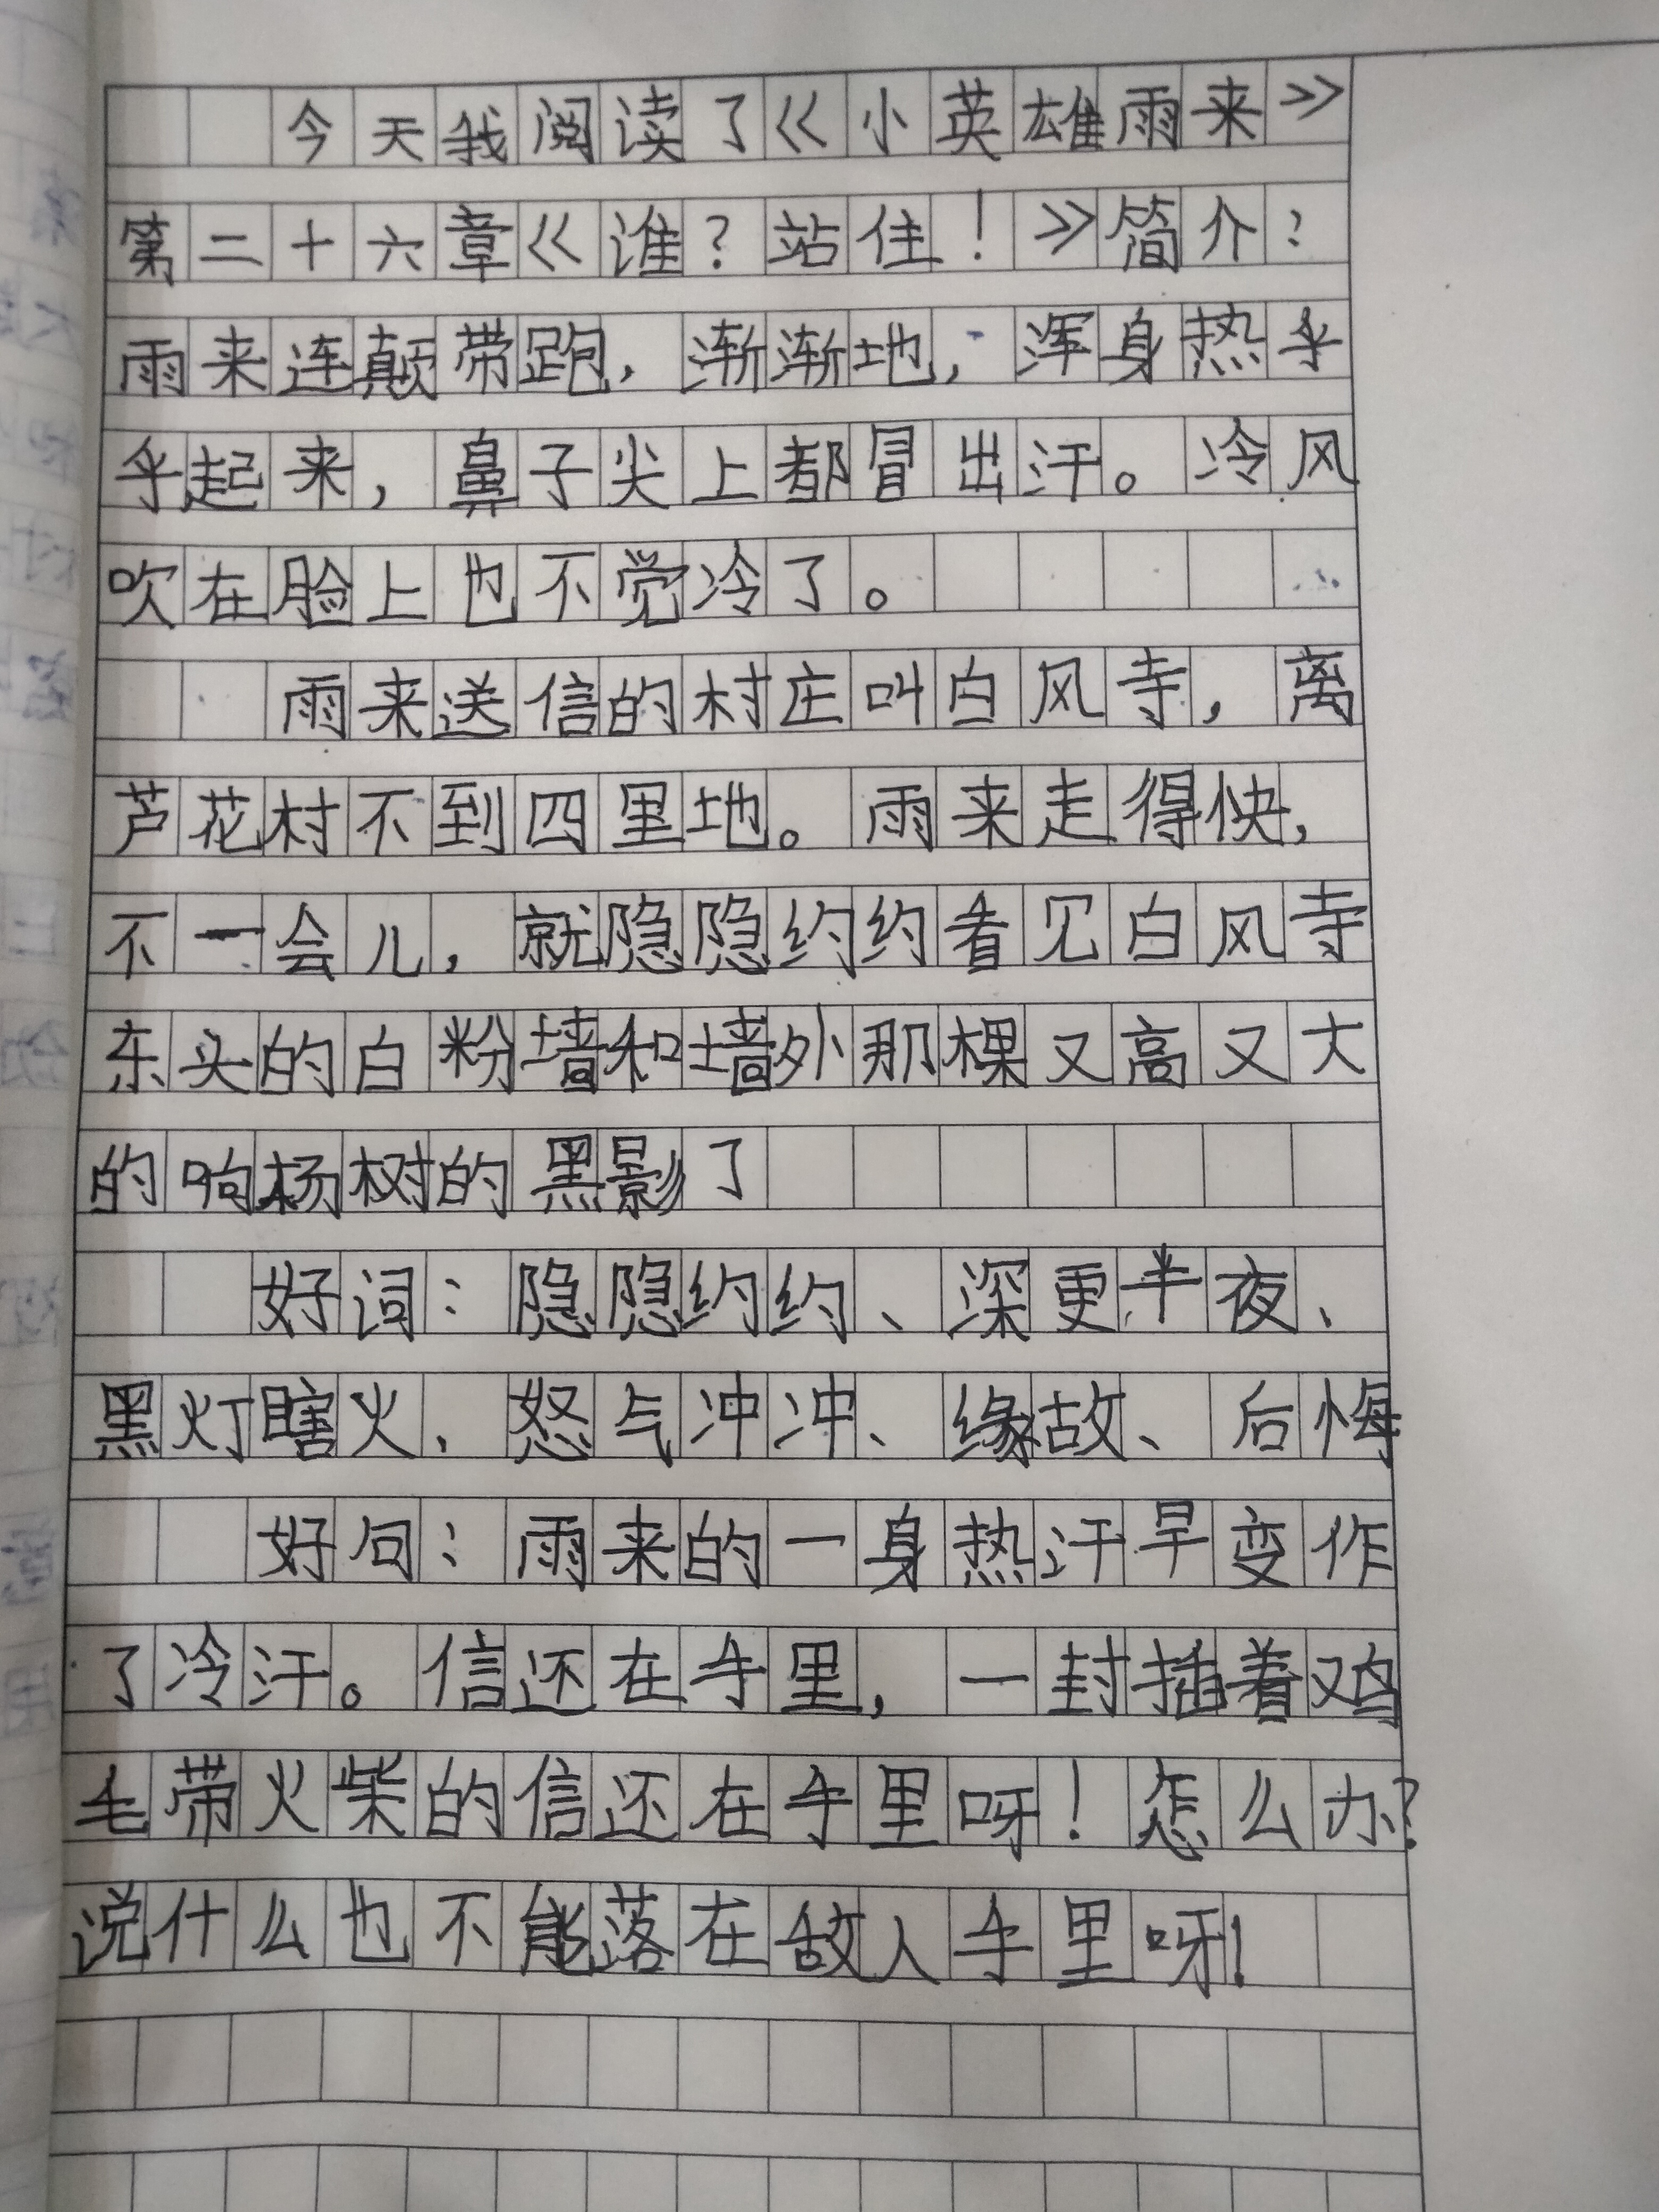 今天我阅读了《小英雄雨来》
第二十六章《谁？站住！》简介：
雨来连颠带跑，渐渐地，浑身热乎
乎起来，鼻子尖上都冒出汗。冷风
吹在脸上也不觉冷了。
雨来送信的村庄叫白风寺，离
芦花村不到四里地。雨来走得快，
不一会儿，就隐隐约约看见白风寺
东头的白粉墙和墙外那棵又高又大
的响杨树的黑影了
好词：隐隐约约、深更半夜、
黑灯瞎火、怒气冲冲、缘故、后悔
好句：雨来的一身热汗早变作
了冷汗。信还在手里，一封插着鸡
毛带火柴的信还在手里呀！怎么办？
说什么也不能落在敌人手里呀！